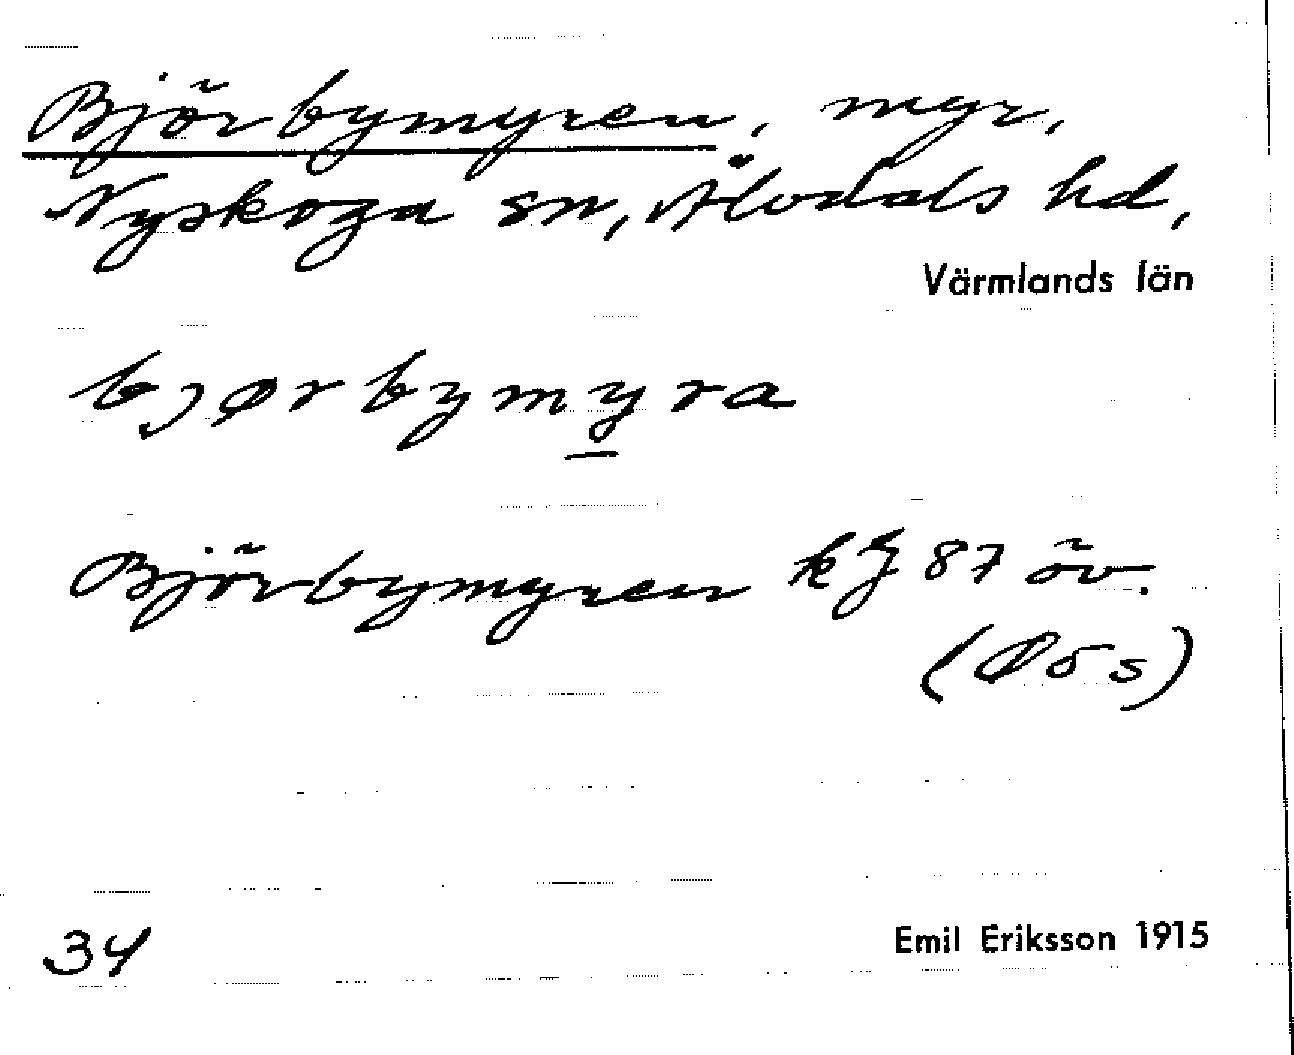 Björbymyren, myr,
Nyskoga sn, Älvdals hd,
Värmlands län
bjørbymyra
Björbymyren kζ 87 öv.
(Øös)
34
Emil Eriksson 1915